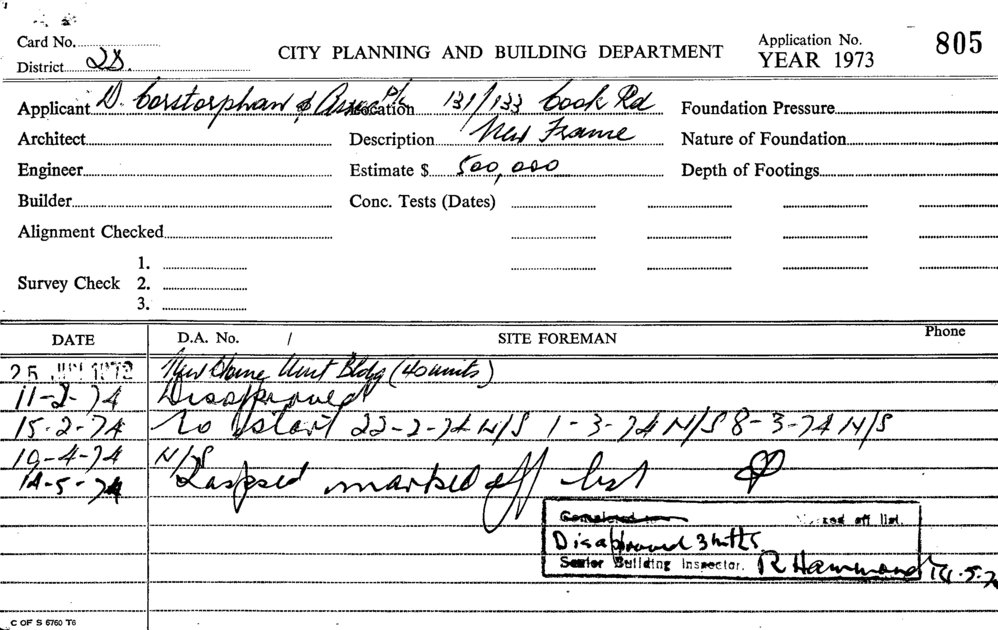 Card No.
CITY PLANNING AND BUILDING DEPARTMENT
Application No. 805
District 2D.
YEAR 1973
Applicant D. Corstorphan & Assoc P/L Location 131/133 Cook Rd Foundation Pressure
Architect Description New Frame Nature of Foundation
Engineer Estimate $ 500,000 Depth of Footings
Builder Conc. Tests (Dates)
Alignment Checked
1.
Survey Check 2.
3.
DATE D.A. No. / SITE FOREMAN Phone
25 JUN New Home Unit Bldg (40 units)
11-2-74 Disapproved
15-2-74 No start 22-2-74 N/S 1-3-74 N/S 8-3-74 N/S
19-4-74 N/S
14-5-74 Lapsed marked off list
Completed off list.
Disapproved 3 mths
Senior Building Inspector. R Hammond 14.5.7
C OF S 6760 T6